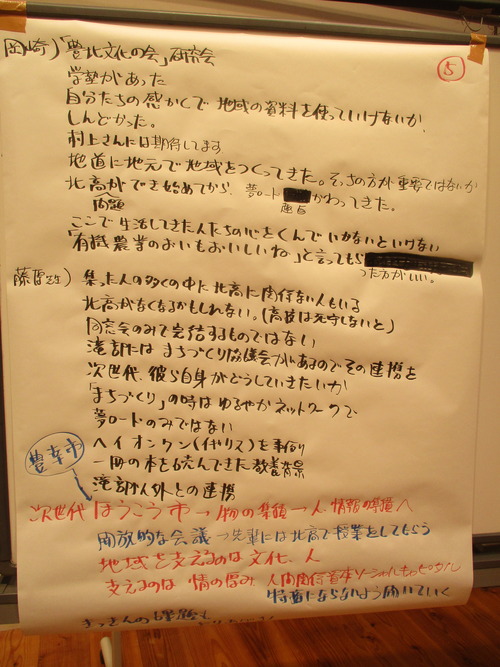 ⑤
岡崎)「豊北文化の会」研究会
学塾があった
自分たちの感かくで地域の資料を使っていけないか、
しんどかった。
村上さんには期待してます
地道に地元で地域をつくってきた。そっちの方が重要ではないか
北高ができ始めてから、夢ロード かわってきた。
問題 趣旨
ここで生活してきた人たちの心をくんでいかないといけない
「有機農業のおいもおいしいね」と言ってもら
った方がいい。
藤冨) 集った人の多くの中に北高に関係ない人もいる
北高がなくなるかもしれない。(高校は死守しないと)
同窓会のみで完結するものではない
滝部にはまちづくり協議会があるのでその連携を
次世代、彼ら自身がどうしていきたいか
「まちづくり」の時はゆるやかネットワークで
夢ロードのみではない
ヘイオンワイ(イギリス)を事例
一冊の本を読んできた教養背景
滝部以外との連携
豊幸市
次世代 ほうこう市→物の集積→人 情報の集積へ
開放的な会議→先輩には北高で授業をしてもらう
地域を支えるのは文化、人
支えるのは 情の厚み、人間関係資本ソーシャルキャピタル
特産にならないよう開いていく